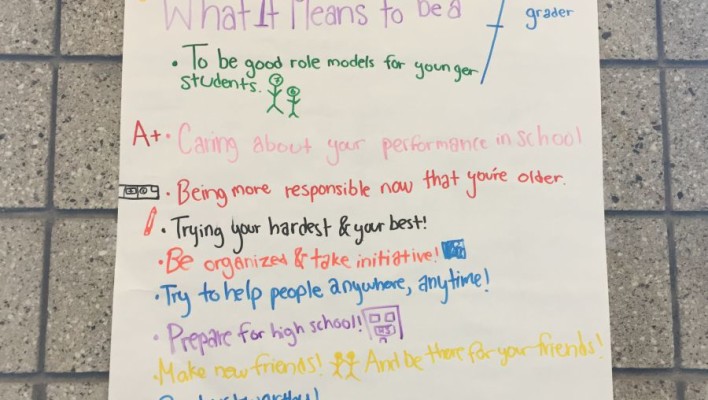 What It Means to be a
grader
• To be good role models for younger
students.
A+ • Caring about your performance in school
• Being more responsible now that you're older.
• Trying your hardest & your best!
• Be organized & take initiative!
• Try to help people anywhere, anytime!
• Prepare for high school!
HS
• Make new friends! And be there for your friends!